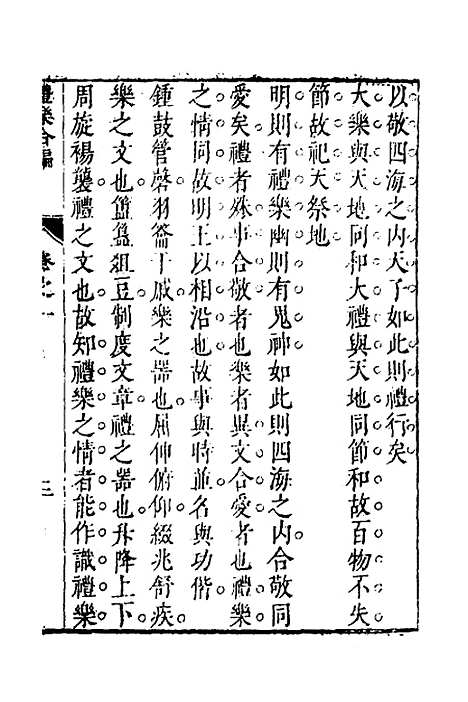 以敬四海之內天子如此則禮行矣
大樂與天地同和大禮與天地同節和故百物不失
節故祀天祭地
明則有禮樂幽則有鬼神如此則四海之內合敬同
愛矣禮者殊事合敬者也樂者異文合愛者也禮樂
之情同故明王以相沿也故事與時並名與功偕
鍾鼓管磬羽籥干戚樂之器也屈伸俯仰綴兆舒疾
樂之文也簠簋俎豆制度文章禮之器也升降上下
周旋裼襲禮之文也故知禮樂之情者能作識禮樂
禮樂合編
卷之一
三